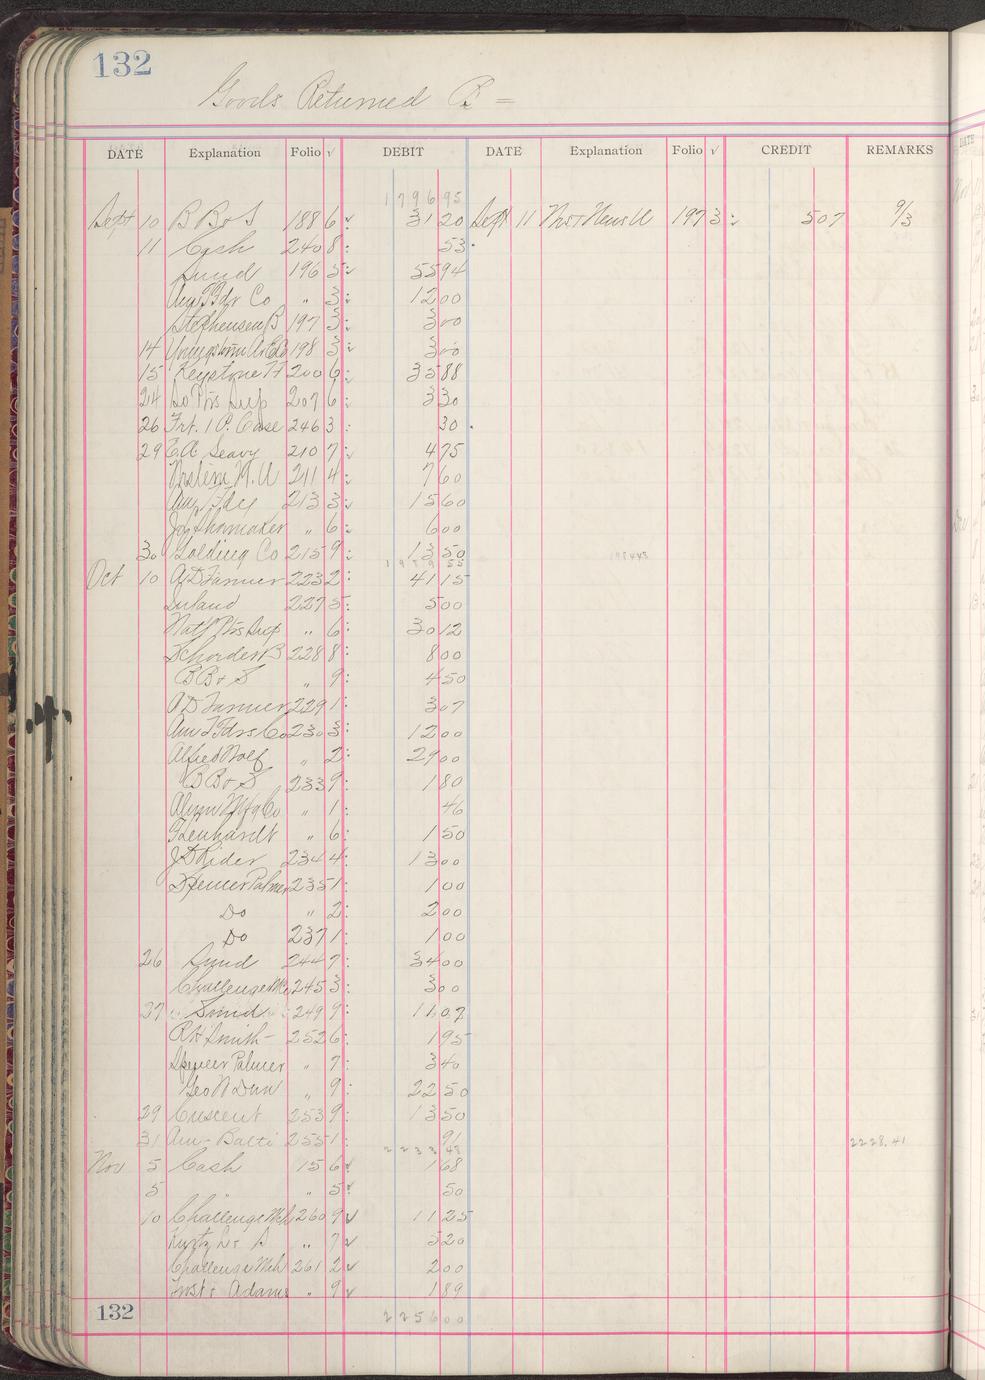 132
Goods Returned
DATE Explanation Folio √ DEBIT DATE Explanation Folio √ CREDIT REMARKS
1796 95
Sept 10 B B & S 188 6 √ 31 20 Sept 11 197 3 5 07 9/3
11 Cash 240 8 53
196 5 √ 55 94
Am T Fdr Co " 3 12 00
Stephensen B 197 3 3 00
14 198 3 √ 3 00
15 Keystone T F 200 6 35 88
24 Do Ptrs Sup 207 6 3 30
26 Frt. 1 P. Case 246 3 30
29 C.A. Seavy 210 7 √ 4 75
211 4 7 60
Am T Fdry 213 3 √ 15 60
Jos Shomaker " 6 6 00
30 Golding Co 215 9 13 50
1989 55
Oct 10 A D Farmer 223 2 41 15
Inland 227 5 5 00
Natl Ptrs Sup " 6 30 12
228 8 8 00
B B & S " 9 4 50
A D Farmer 229 1 3 07
Am T Fdrs Co 230 3 12 00
Alfred Wolf " 2 29 00
B B & S 233 9 1 80
Mfg Co " 1 46
" 6 1 50
J D Rider 234 4 13 00
Spencer Palmer 235 1 1 00
Do " 2 2 00
Do 237 1 1 00
26 244 7 34 00
Challenge Mc 245 3 3 00
27 249 9 11 07
R H Smith 252 6 1 95
Spencer Palmer " 7 3 40
Geo W Dunn " 9 22 50
29 Crescent 253 9 13 50
31 Am - Balti 255 1 91 2228.41
2233 48
Nov 5 Cash 15 6 √ 1 68
5 " " 5 √ 50
10 Challenge Mch 260 9 √ 11 25
" 7 √ 3 20
Challenge Mch 261 2 √ 2 00
Frost & Adams " 9 √ 1 89
132
2256 00